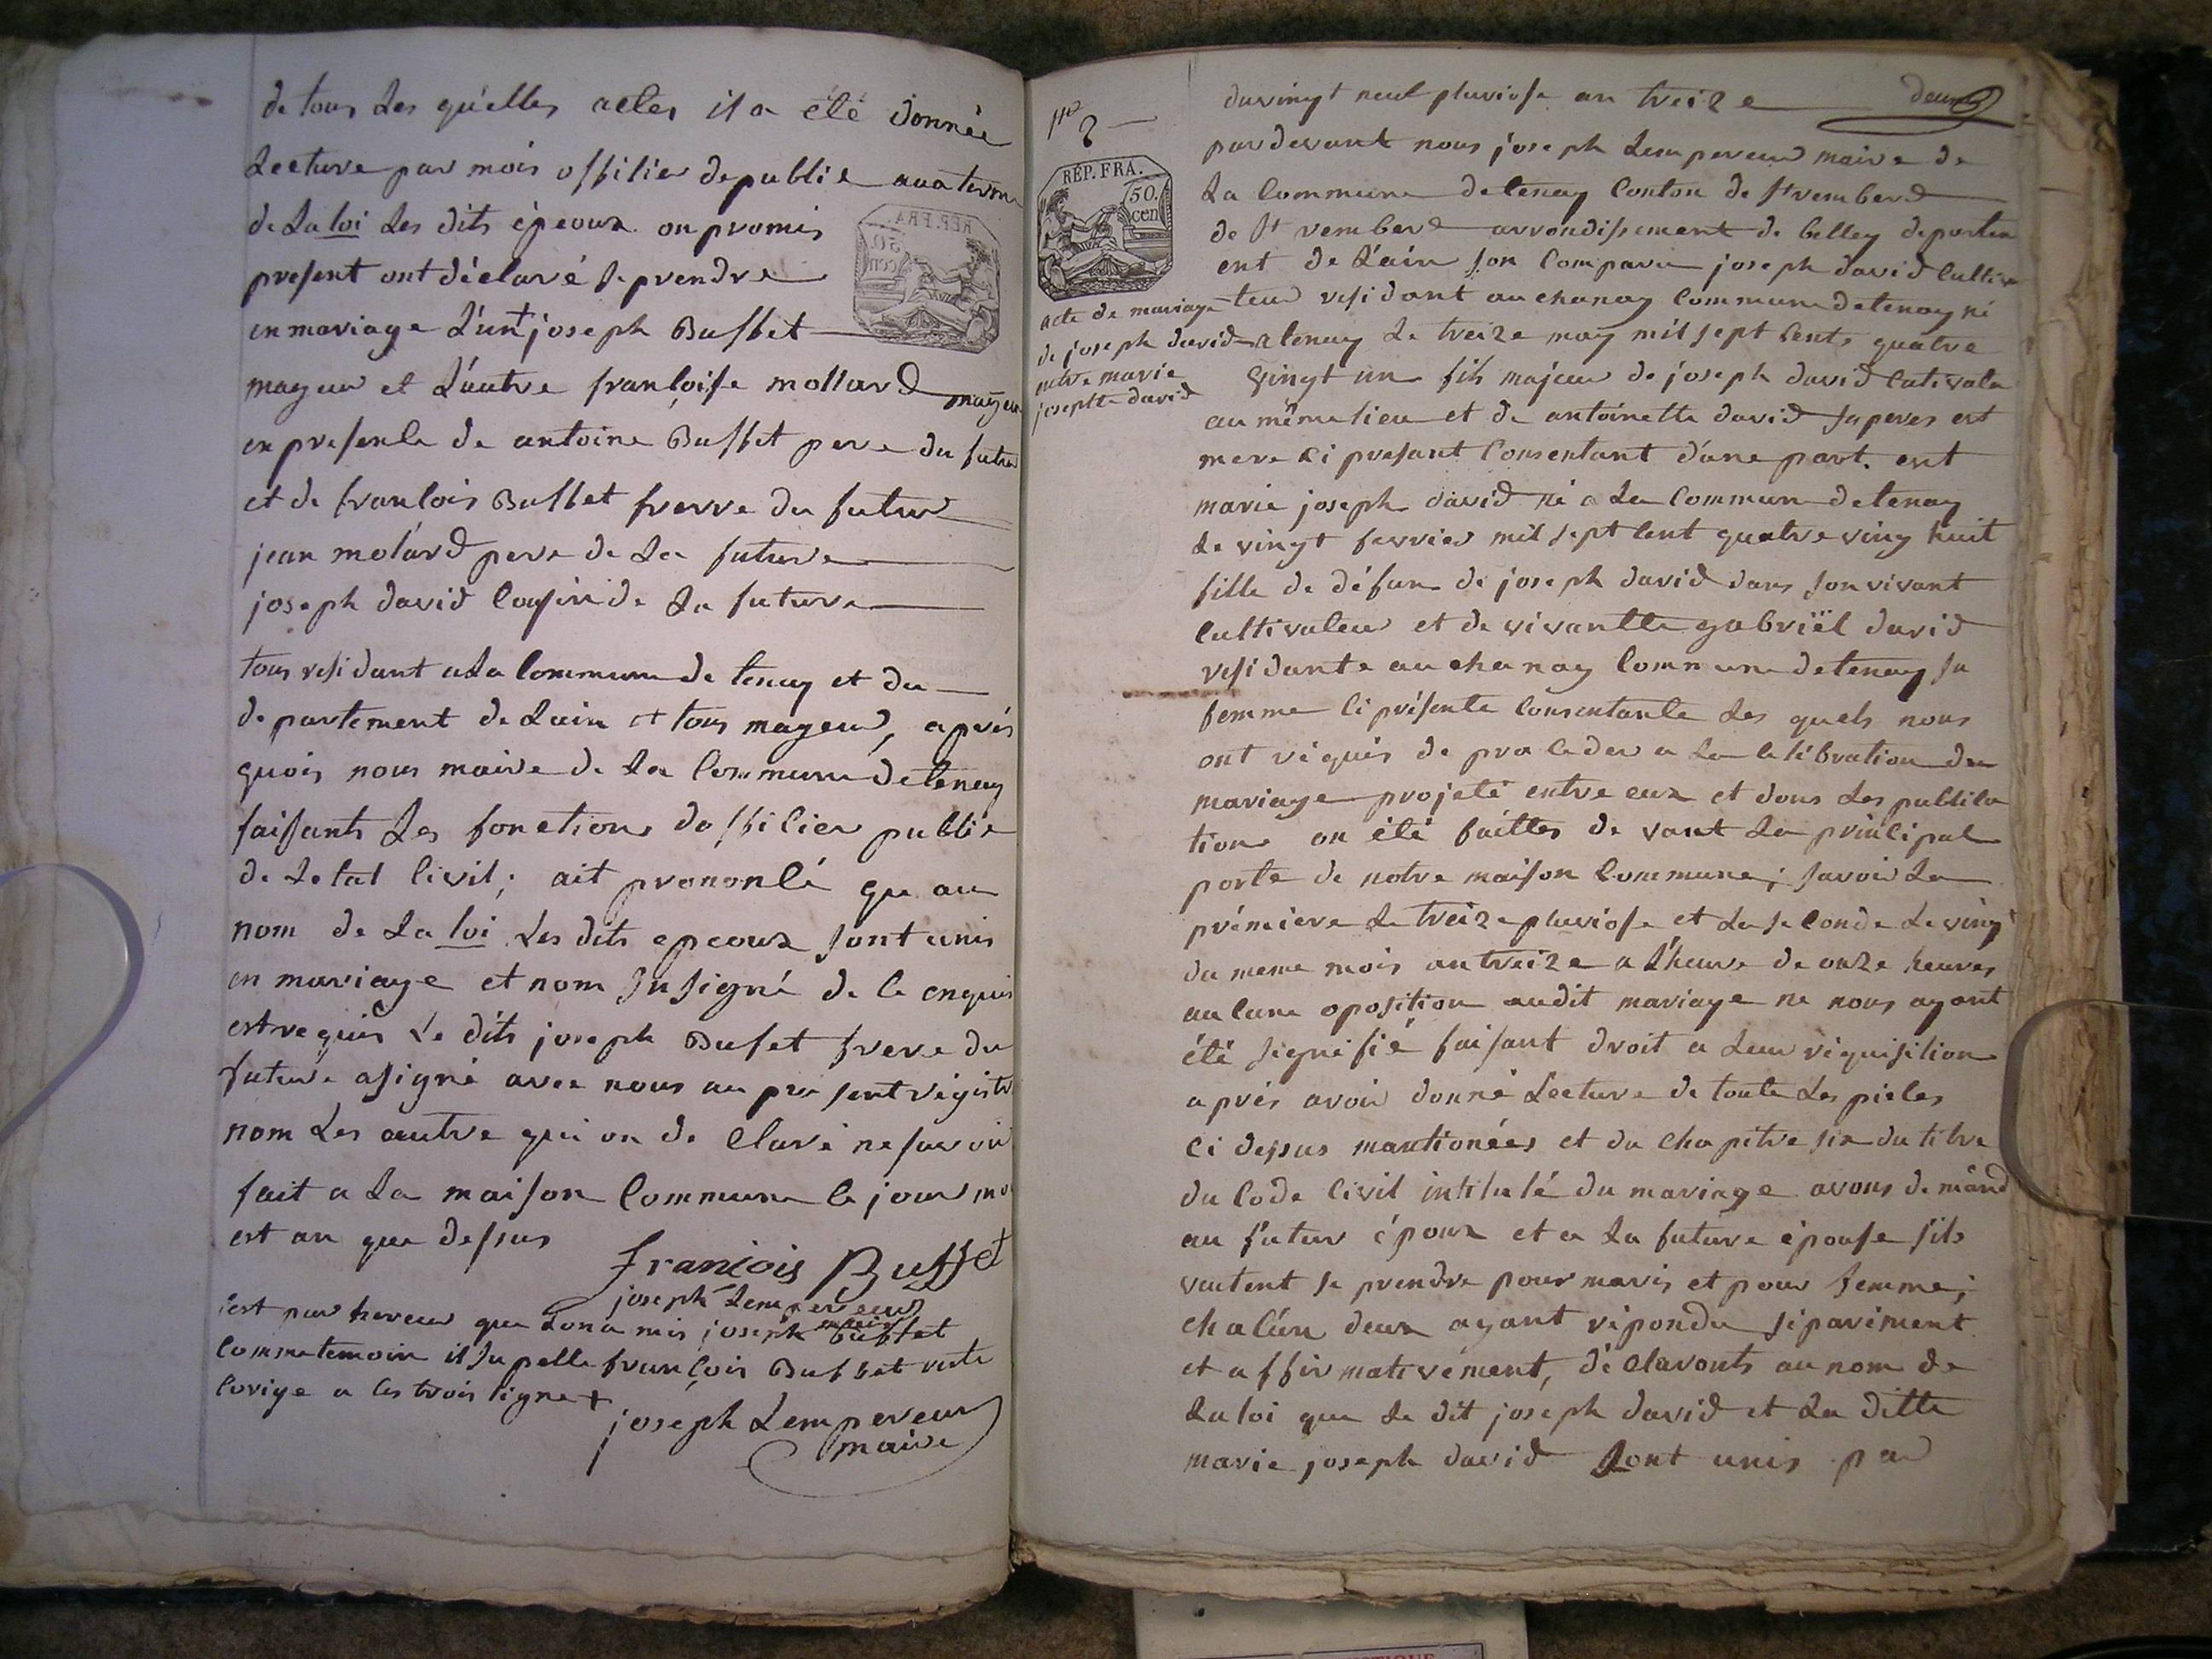 de tous les quélles actes il a été donnée
Lecture par mois offilier de publie aux terme
de La loi Les dits épeoux on promis
present ont déclaré se prendre
en mariage L'unt joseph Buffet
mageur et L'autre franloise mollard mageur
en presenle de antoine Buffet pere du futur
et de franlois Buffet frerre du futur
jean molard pere de La future
joseph david Cousin de La future
tous residant a La Commune de tenay et du
departement de Lain et tous mageur, aprés
quois nous maire de La Commune de tenay
faisants Les fonctions doffilier publie
de Letat Civil; ait prononlé que au
nom de La loi Les dits epeoux sont unis
en mariage et nom Susigné de le enquis
est requis Le dits joseph Bufet frere du
future asigné avec nous au present régistr
nom Les autre qui on de Claré ne savoir
fait a La maison Commune le jour mo
est an que dessus
François Buffet
joseph Lempereur
maire
C'est par hereur que Lon a mis joseph Buffet
Comme temoin il Sapelle françois Buffet
Corige a les trois ligne +
joseph Lempereur
maire
du vingt neuf pluviose an treize
deux
no 2
RÉP. FRA.
50. cen
acte de mariage
de joseph david
entre marie
josephte david
par devant nous joseph Lempereur maire de
La Commune de tenay Canton de st rembert
de St rembert arrondissement de belley departem
ent de L'ain son Comparu joseph david Cultiva
teur residant au chanay Commune de tenay né
a tenay Le treize may mil sept Cents quatre
Vingt un fils majeur de joseph david Cutivateur
au même lieu et de antoinette david Sa peres est
mere Ci presant Consentant d'une part. est
marie joseph david né a La Commune de tenay
Le vingt fevrier mil sept Cent quatre ving huit
fille de défun de joseph david dans son vivant
Cultivateur et de vivantte gabriël david
residante au chanay Commune de tenay sa
femme Ci présente Consentante Les quels nous
ont réquis de proleder a La Célébration du
mariage projeté entre eux et dons Les publila
tions on été faittes de vant La prinlipal
porte de notre maison Commune; savoir La
prémiere Le treize pluviose et La seConde Le vingt
du meme mois an treize a L'heure de onze heures
aulune oposition audit mariage ne nous ayant
été signifié faisant droit a Leur réquisition
aprés avoir donné Lecture de toute Les pieles
Ci dessus mantionées et du Chapitre six du titre
du Code Civil intitulé du mariage avons demànd
au futur époux et a La future épouse sils
veulent se prendre pour maris et pour femme;
chaCún deux ayant répondu séparément
et affirmativement, déClaronts au nom de
La loi que Le dit joseph david et La ditte
marie joseph david Sont unis par